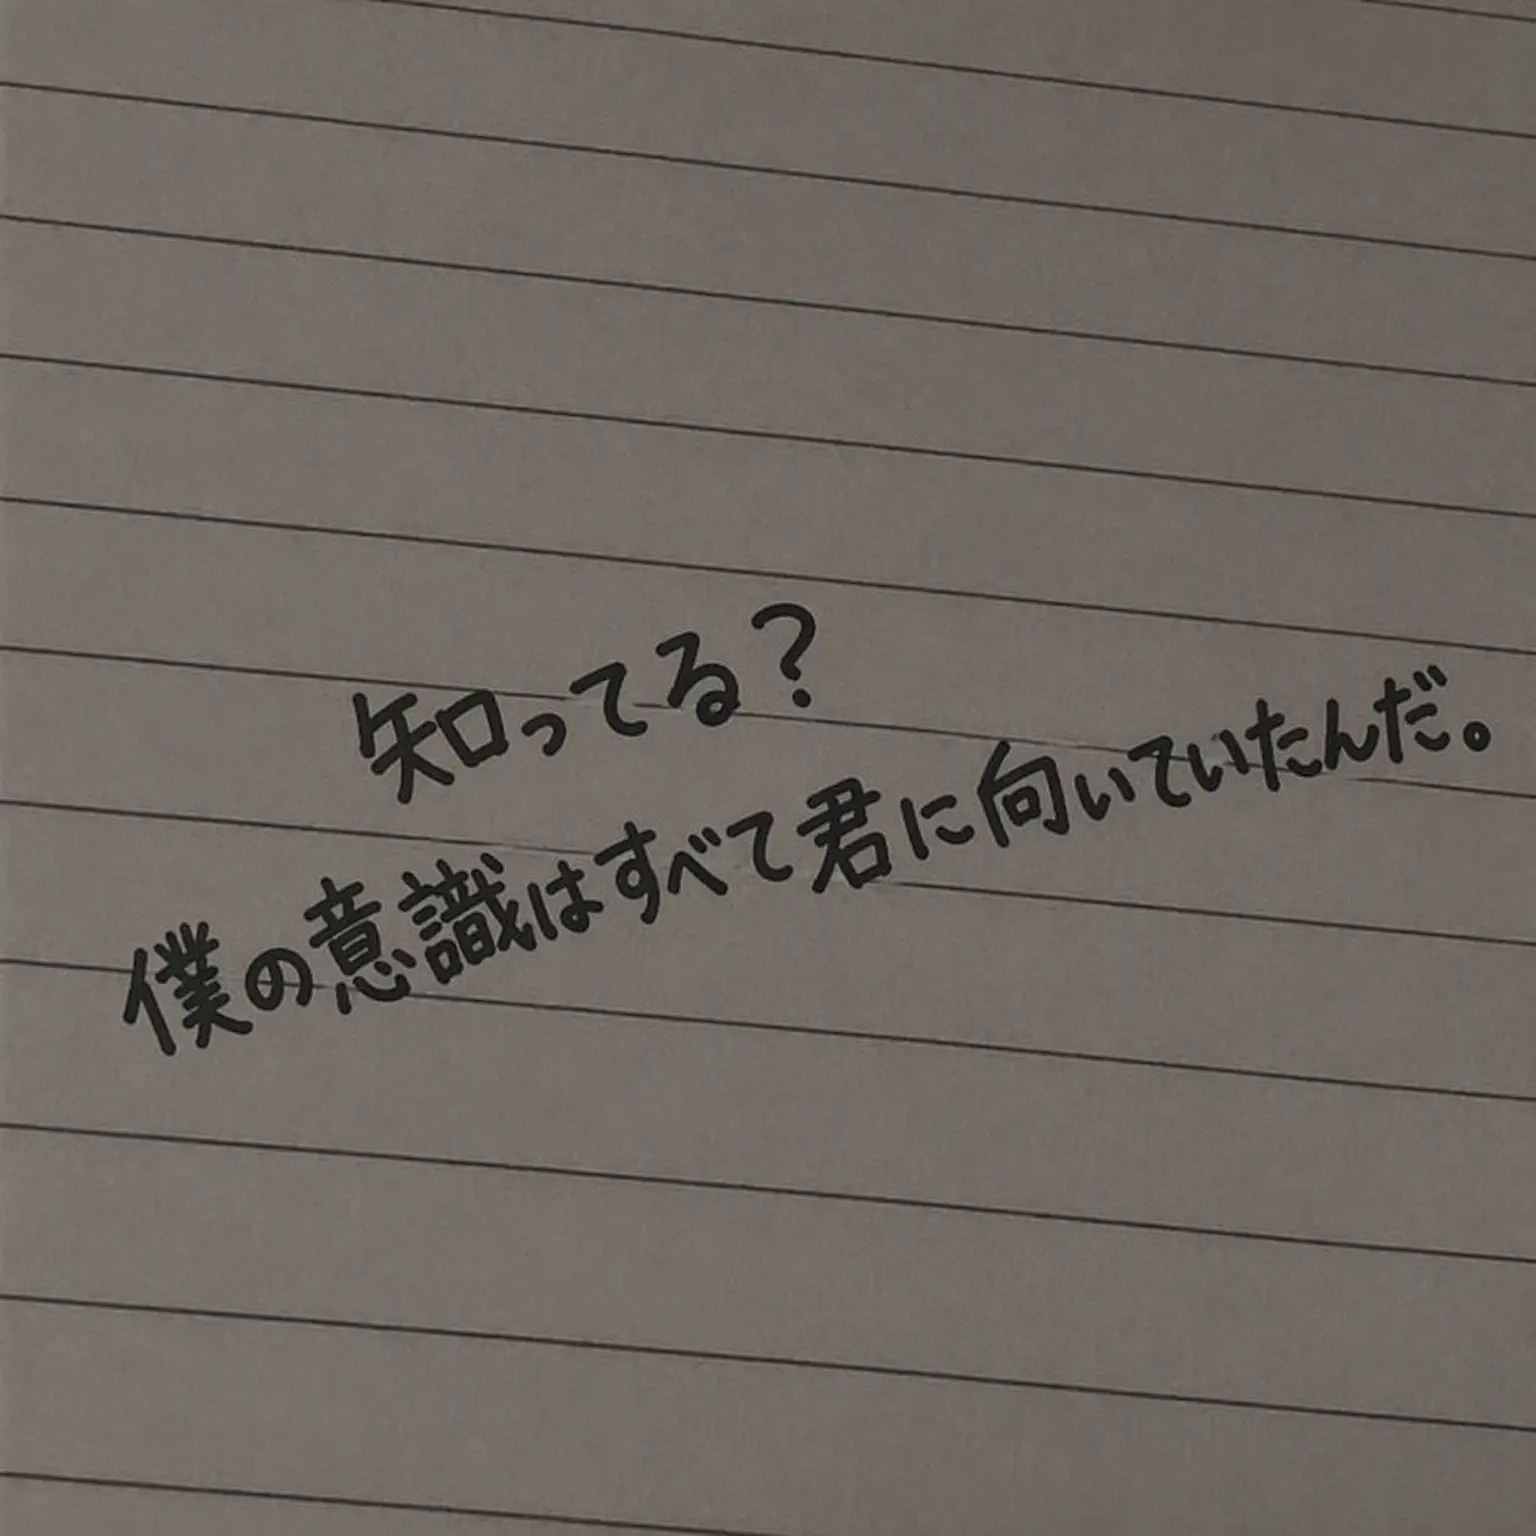 知ってる?
僕の意識はすべて君に向いていたんだ。